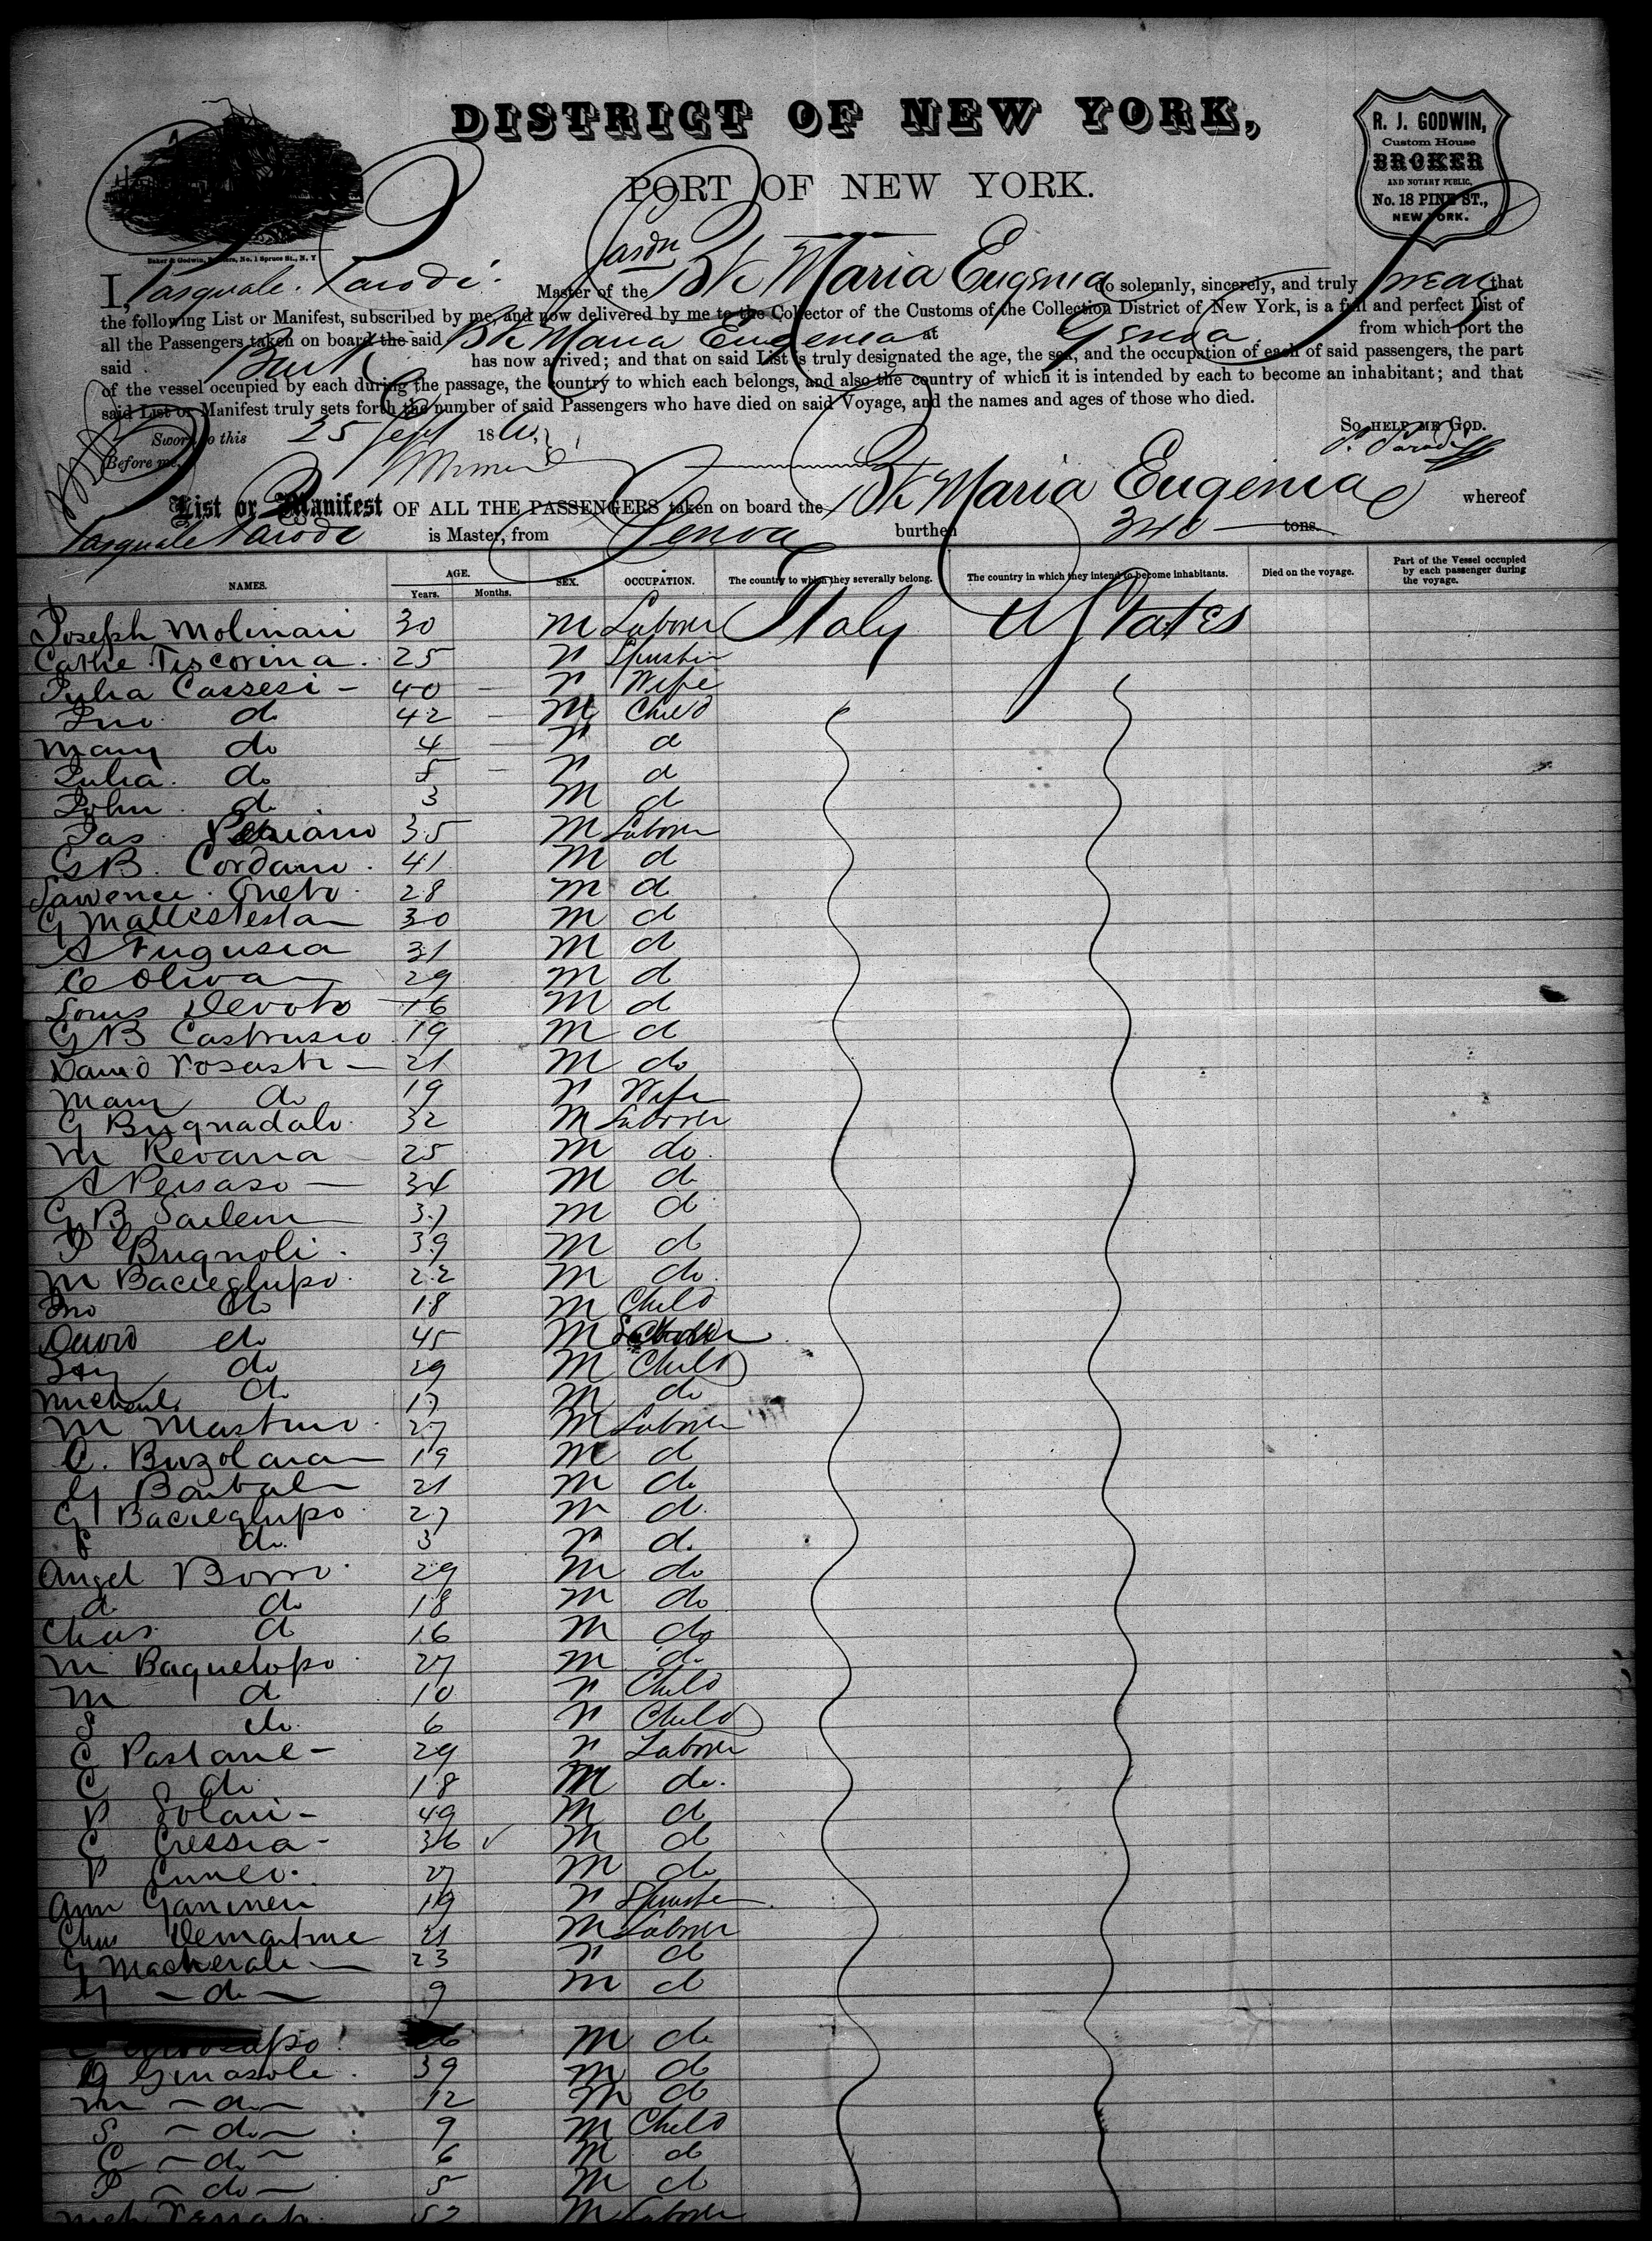 DISTRICT OF NEW YORK,
PORT OF NEW YORK.
R. J. GODWIN,
Custom House
BROKER
AND NOTARY PUBLIC,
No. 18 PINE ST.,
NEW YORK.
Baker & Godwin, Printers, No. 1 Spruce St., N. Y
I, Pasquale Parodi Master of the Sardn Bk Maria Eugenia do solemnly, sincerely, and truly swear that
the following List or Manifest, subscribed by me, and now delivered by me to the Collector of the Customs of the Collection District of New York, is a full and perfect list of
all the Passengers taken on board the said Bk Maria Eugenia at Genoa from which port the
said Bark has now arrived; and that on said List is truly designated the age, the sex, and the occupation of each of said passengers, the part
of the vessel occupied by each during the passage, the country to which each belongs, and also the country of which it is intended by each to become an inhabitant; and that
said List or Manifest truly sets forth the number of said Passengers who have died on said Voyage, and the names and ages of those who died.
Sworn to this 25 Sept 186 SO HELP ME GOD.
Before me, P. Parodi
List or Manifest OF ALL THE PASSENGERS taken on board the Bk Maria Eugenia whereof
Pasquale Parodi is Master, from Genoa burthen 340 tons.
NAMES. AGE. Years. Months. SEX. OCCUPATION. The country to which they severally belong. The country in which they intend to become inhabitants. Died on the voyage. Part of the Vessel occupied by each passenger during the voyage.
Joseph Molinari 30 M Laborer Italy U States
Cathe Tiscorina 25 F Spinster
Julia Cassesi - 40 - F Wife
Jno do 42 - M Child
Mary do 4 - F d
Julia do 5 - F d
John do 3 M d
Jas 35 M Laborer
G B Cordano 41 M d
Lawence Cneto 28 M d
G Mallestesta 30 M d
A Fugusia 31 M d
C Oliva 29 M d
Louis Devoto 16 M d
G B Castrusio 19 M d
David Fosasti - 21 M do
Mary do 19 F Wife
G Bugnadalo 32 M Laborer
M Revaria 25 M do
A Persaso - 34 M d
G B 37 M d
P Bugnoli 39 M d
M Bacieglupo 22 M do
Jno do 18 M Child
David do 45 M
do 29 M Child
Michael do 17 M do
M Mastrno 27 M Laborer
C. Buzolara 19 M d
G 21 M do
G Bacieglupo 27 M d
F do 3 F d.
Angel Borro 29 M do
d do 18 M do
Chas d 16 M do
M Baguelopo 27 M do
M d 10 F Child
S do 6 F Child
C Pastane - 29 F Laborer
C do 18 M do.
P Solari - 49 M d
C Cressia - 36 ✓ M d
P Cuneo 27 M do
Ann 19 F Spinster
Chas Demartine 21 M Laborer
G 23 F d
G - do - 9 M d
M do
G Ginasole 39 M d
M - do - 12 M d
S - do - 9 M Child
C - do - 6 M d
P - do - 5 M d
52 M Laborer